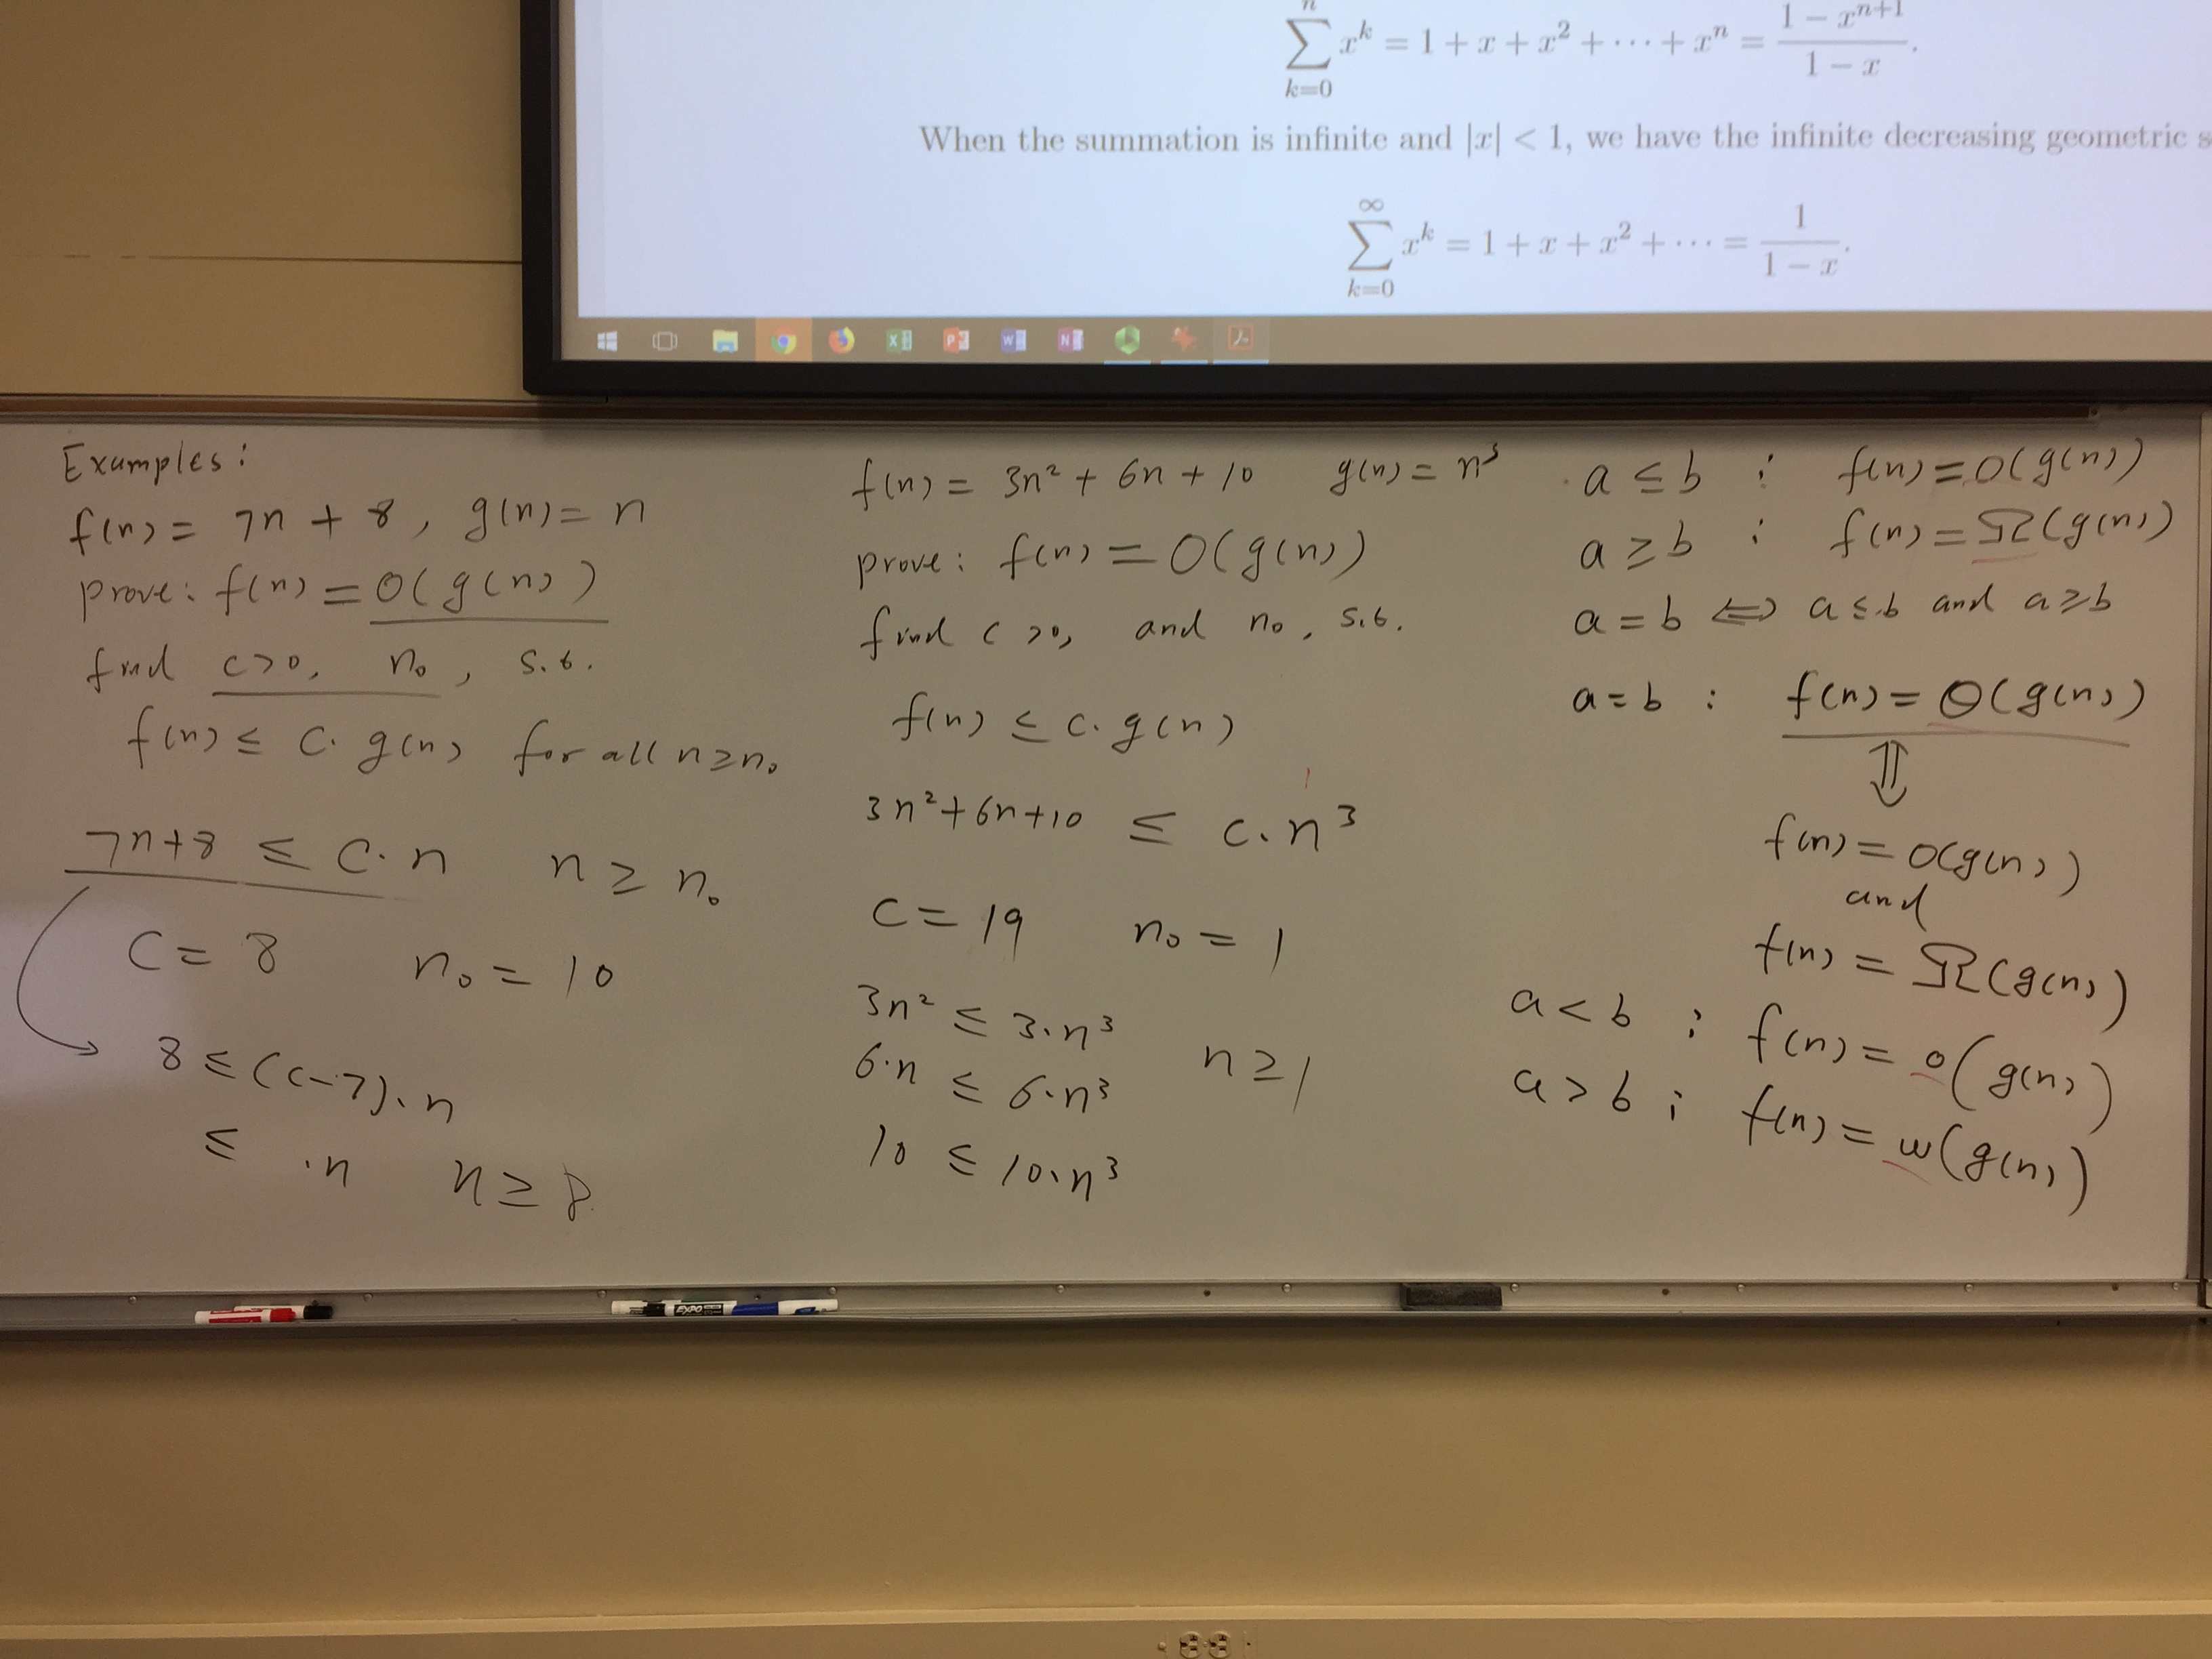 n
∑ x^k = 1 + x + x² + ··· + xⁿ = (1 − x^(n+1)) / (1 − x).
k=0
When the summation is infinite and |x| < 1, we have the infinite decreasing geometric s
∞
∑ x^k = 1 + x + x² + ··· = 1 / (1 − x).
k=0
Examples:
f(n) = 7n + 8, g(n) = n
prove: f(n) = O(g(n))
find c>0, n₀, s.t.
f(n) ≤ c·g(n) for all n≥n₀
7n+8 ≤ c·n n ≥ n₀
c = 8 n₀ = 10
8 ≤ (c-7)·n
≤ ·n n ≥ 8
f(n) = 3n² + 6n + 10 g(n) = n³
prove: f(n) = O(g(n))
find c >0, and n₀, s.t.
f(n) ≤ c·g(n)
3n²+6n+10 ≤ c·n³
c = 19 n₀ = 1
3n² ≤ 3·n³
6·n ≤ 6·n³ n ≥ 1
10 ≤ 10·n³
a ≤ b : f(n) = O(g(n))
a ≥ b : f(n) = Ω(g(n))
a = b ⇔ a ≤ b and a ≥ b
a = b : f(n) = Θ(g(n))
⇕
f(n) = O(g(n))
and
f(n) = Ω(g(n))
a < b : f(n) = o(g(n))
a > b : f(n) = ω(g(n))
EXPO